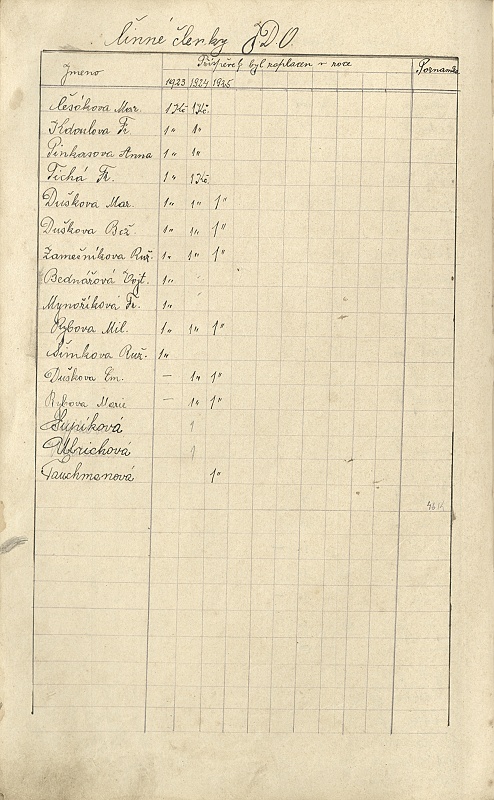 činné členky J.D.O.
Jmeno Příspěvek byl zaplacen v roce Poznamka
1923 1924 1925
Lešákova Mar. 1 Kč 1 Kč
Kdoulova Fr. 1 " 1 "
Pinkasova Anna 1 " 1 "
Tichá Fr. 1 " 1 Kč
Duškova Mar. 1 " 1 " 1 "
Duškova Bož. 1 " 1 " 1 "
Zamečníkova Ruž. 1 " 1 " 1 "
Bednářová Vojt. 1 "
Mynoříková Fr. 1 "
Rybova Mil. 1 " 1 " 1 "
Šimkova Ruž. 1 "
Duškova Em. — 1 " 1 "
Rybova Marie — 1 " 1 "
Supíková 1
Ulrichová 1
Tauchmanová 1 "